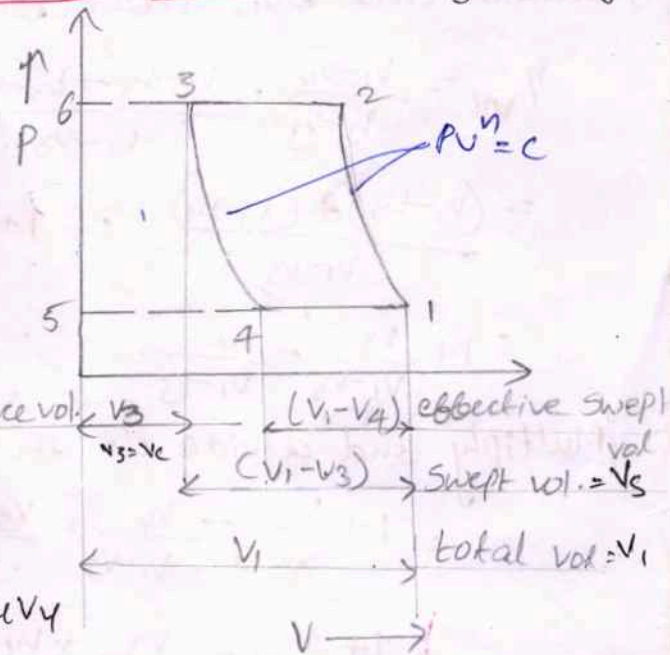 3 2
6
P
PVⁿ = C
5
4 1
ce vol. V3 (V1-V4) effective swept
vol
V3=Vc
(V1-V3) Swept vol. = Vs
V1 total vol = V1
V4
V